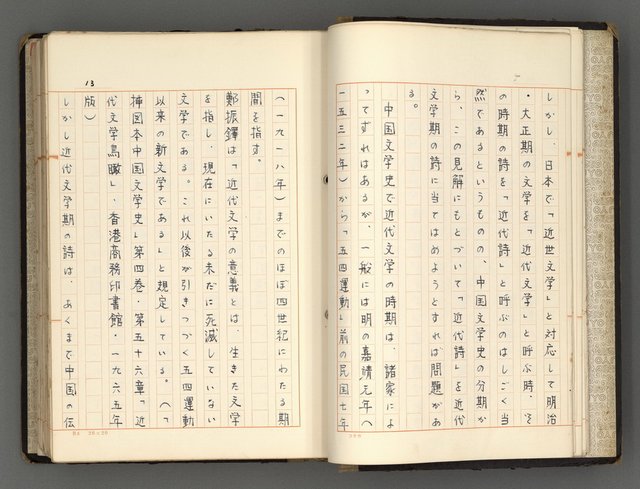 しかし、日本で「近世文学」と対応して明治
・大正期の文学を「近代文学」と呼ぶ時、そ
の時期の詩を「近代詩」と呼ぶのはしごく当
然であるというものの、中国文学史の分期か
ら、この見解にもとづいて「近代詩」を近代
文学期の詩に当てはめようとすれば問題があ
る。
中国文学史で近代文学の時期は、諸家によ
ってずれはあるが、一般には明の嘉靖元年（
一五三二年）から「五四運動」前の民国七年
（一九一八年）までのほぼ四世紀にわたる期
間を指す。
鄭振鐸は「近代文学の意義とは、生きた文学
を指し、現在にいたる未だに死滅していない
文学である。これ以後が引きつづく五四運動
以来の新文学である」と規定している。（「
挿図本中国文学史」第四巻・第五十六章「近
代文学鳥瞰」・香港商務印書館・一九六五年
版）
しかし近代文学期の詩は、あくまで中国の伝
13
20×20